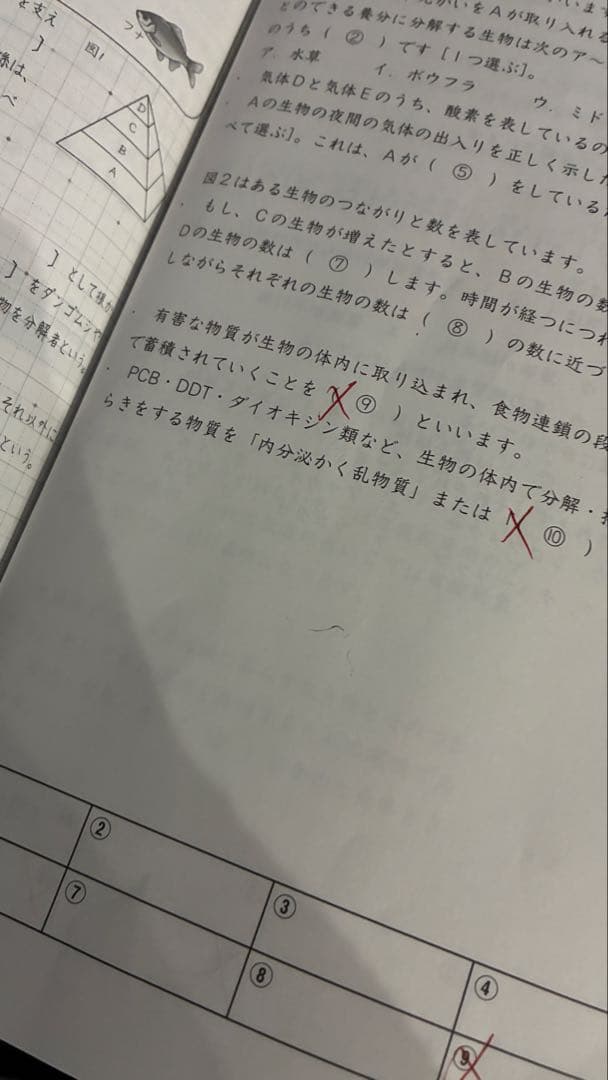 を支え
]
図1
フナ
係は、
べ
D
C
B
A
] として様
] をダンゴムシや
物を分解者という。
それ以外に
という。
いをAが取り入れる
とのできる養分に分解する生物は次のア〜
のうち( ② )です[1つ選ぶ]。
ア. 水草
イ. ボウフラ
ウ. ミド
・ 気体Dと気体Eのうち、酸素を表しているの
・ Aの生物の夜間の気体の出入りを正しく示した
べて選ぶ]。これは、Aが( ⑤ )をしている
図2はある生物のつながりと数を表しています。
・ もし、Cの生物が増えたとすると、Bの生物の数
Dの生物の数は( ⑦ )します。時間が経つにつれ
しながらそれぞれの生物の数は( ⑧ )の数に近づ
・ 有害な物質が生物の体内に取り込まれ、食物連鎖の段
て蓄積されていくことを( ⑨ )といいます。
・ PCB・DDT・ダイオキシン類など、生物の体内で分解・
らきをする物質を「内分泌かく乱物質」または( ⑩ )
②
③
④
⑦
⑧
⑨